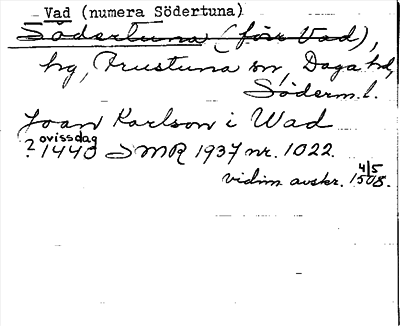 Vad (numera Södertuna)
Södertuna (förr Vad),
hg, Frustuna sn, Daga hd,
Söderm.l.
Joan Karlson i Wad
ovissdag
? 1440 SMR 1937 nr. 1022.
vidim avskr. 4/5 1508.